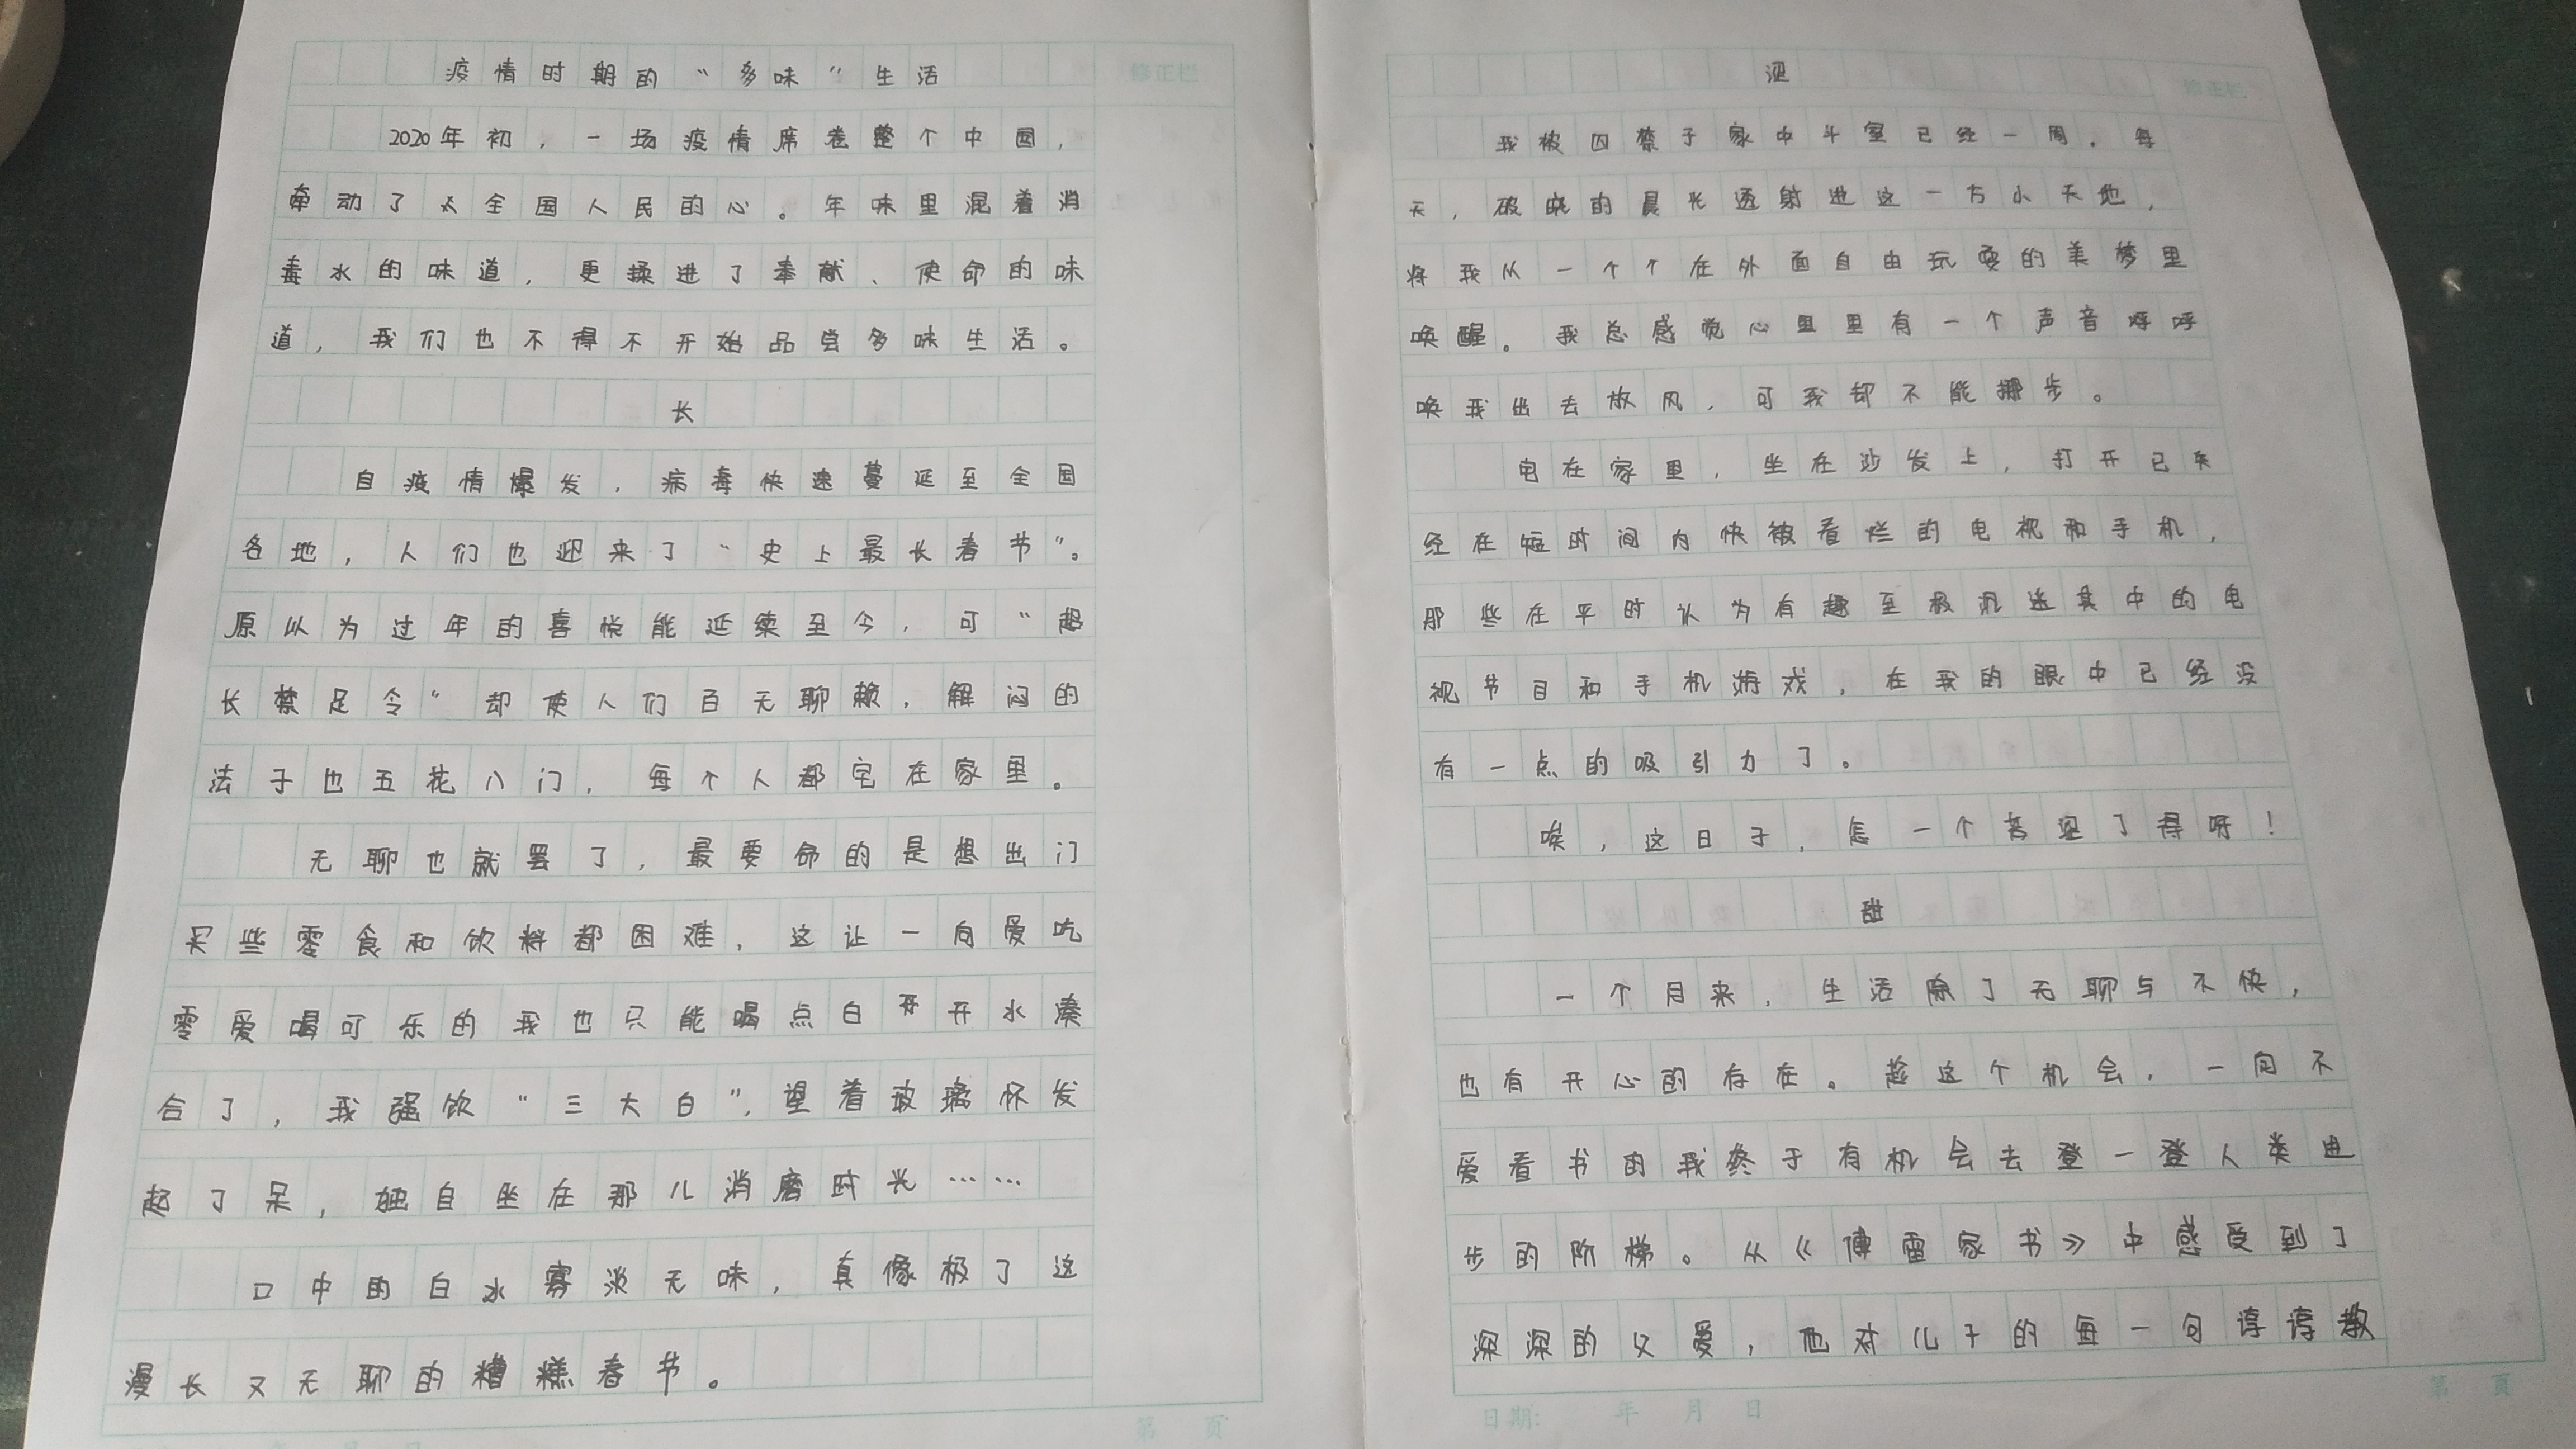 疫情时期的“多味”生活
修正栏
2020年初，一场疫情席卷整个中国，
牵动了全国人民的心。年味里混着消
毒水的味道，更揉进了奉献、使命的味
道，我们也不得不开始品尝多味生活。
长
自疫情爆发，病毒快速蔓延至全国
各地，人们也迎来了“史上最长春节”。
原以为过年的喜悦能延续至今，可“超
长禁足令”却使人们百无聊赖，解闷的
法子也五花八门，每个人都宅在家里。
无聊也就罢了，最要命的是想出门
买些零食和饮料都困难，这让一向爱吃
零爱喝可乐的我也只能喝点白开水凑
合了，我强饮“三大白”，望着玻璃杯发
起了呆，独自坐在那儿消磨时光……
口中的白水寡淡无味，真像极了这
漫长又无聊的糟糕春节。
第 页
涩
修正栏
我被囚禁于家中斗室已经一周。每
天，破晓的晨光透射进这一方小天地，
将我从一个个在外面自由玩耍的美梦里
唤醒。我总感觉心里里有一个声音呼呼
唤我出去放风，可我却不能挪步。
宅在家里，坐在沙发上，打开已
经在短时间内快被看烂的电视和手机，
那些在平时认为有趣至极沉迷其中的电
视节目和手机游戏，在我的眼中已经没
有一点的吸引力了。
唉，这日子，怎一个苦涩了得呀！
甜
一个月来，生活除了无聊与不快，
也有开心的存在。趁这个机会，一向不
爱看书的我终于有机会去登一登人类进
步的阶梯。从《傅雷家书》中感受到了
深深的父爱，他对儿子的每一句谆谆教
日期： 年 月 日
第 页